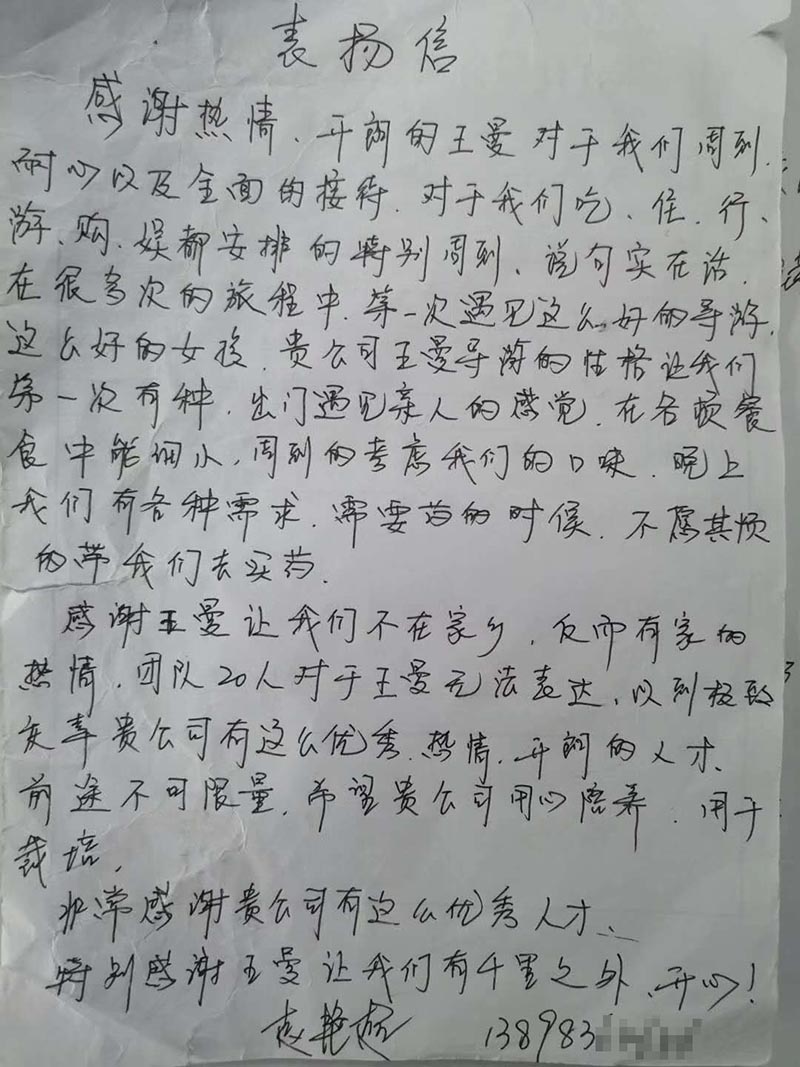 表扬信
感谢热情、开朗的王曼对于我们周到、
耐心以及全面的接待、对于我们吃、住、行、
游、购、娱都安排的特别周到、说句实在话、
在很多次的旅程中、第一次遇见这么好的导游、
这么好的女孩、贵公司王曼导游的性格让我们
第一次有种、出门遇见亲人的感觉、在各顿餐
食中能细心、周到的考虑我们的口味、晚上
我们有各种需求、需要药的时候、不厌其烦
的带我们去买药、
感谢王曼让我们不在家乡、反而有家的
热情、团队20人对于王曼无法表达、以到极致
庆幸贵公司有这么优秀、热情、开朗的人才、
前途不可限量、希望贵公司用心陪养、用于
栽培、
非常感谢贵公司有这么优秀人才、
特别感谢王曼让我们有千里之外、开心！
赵艳 138983